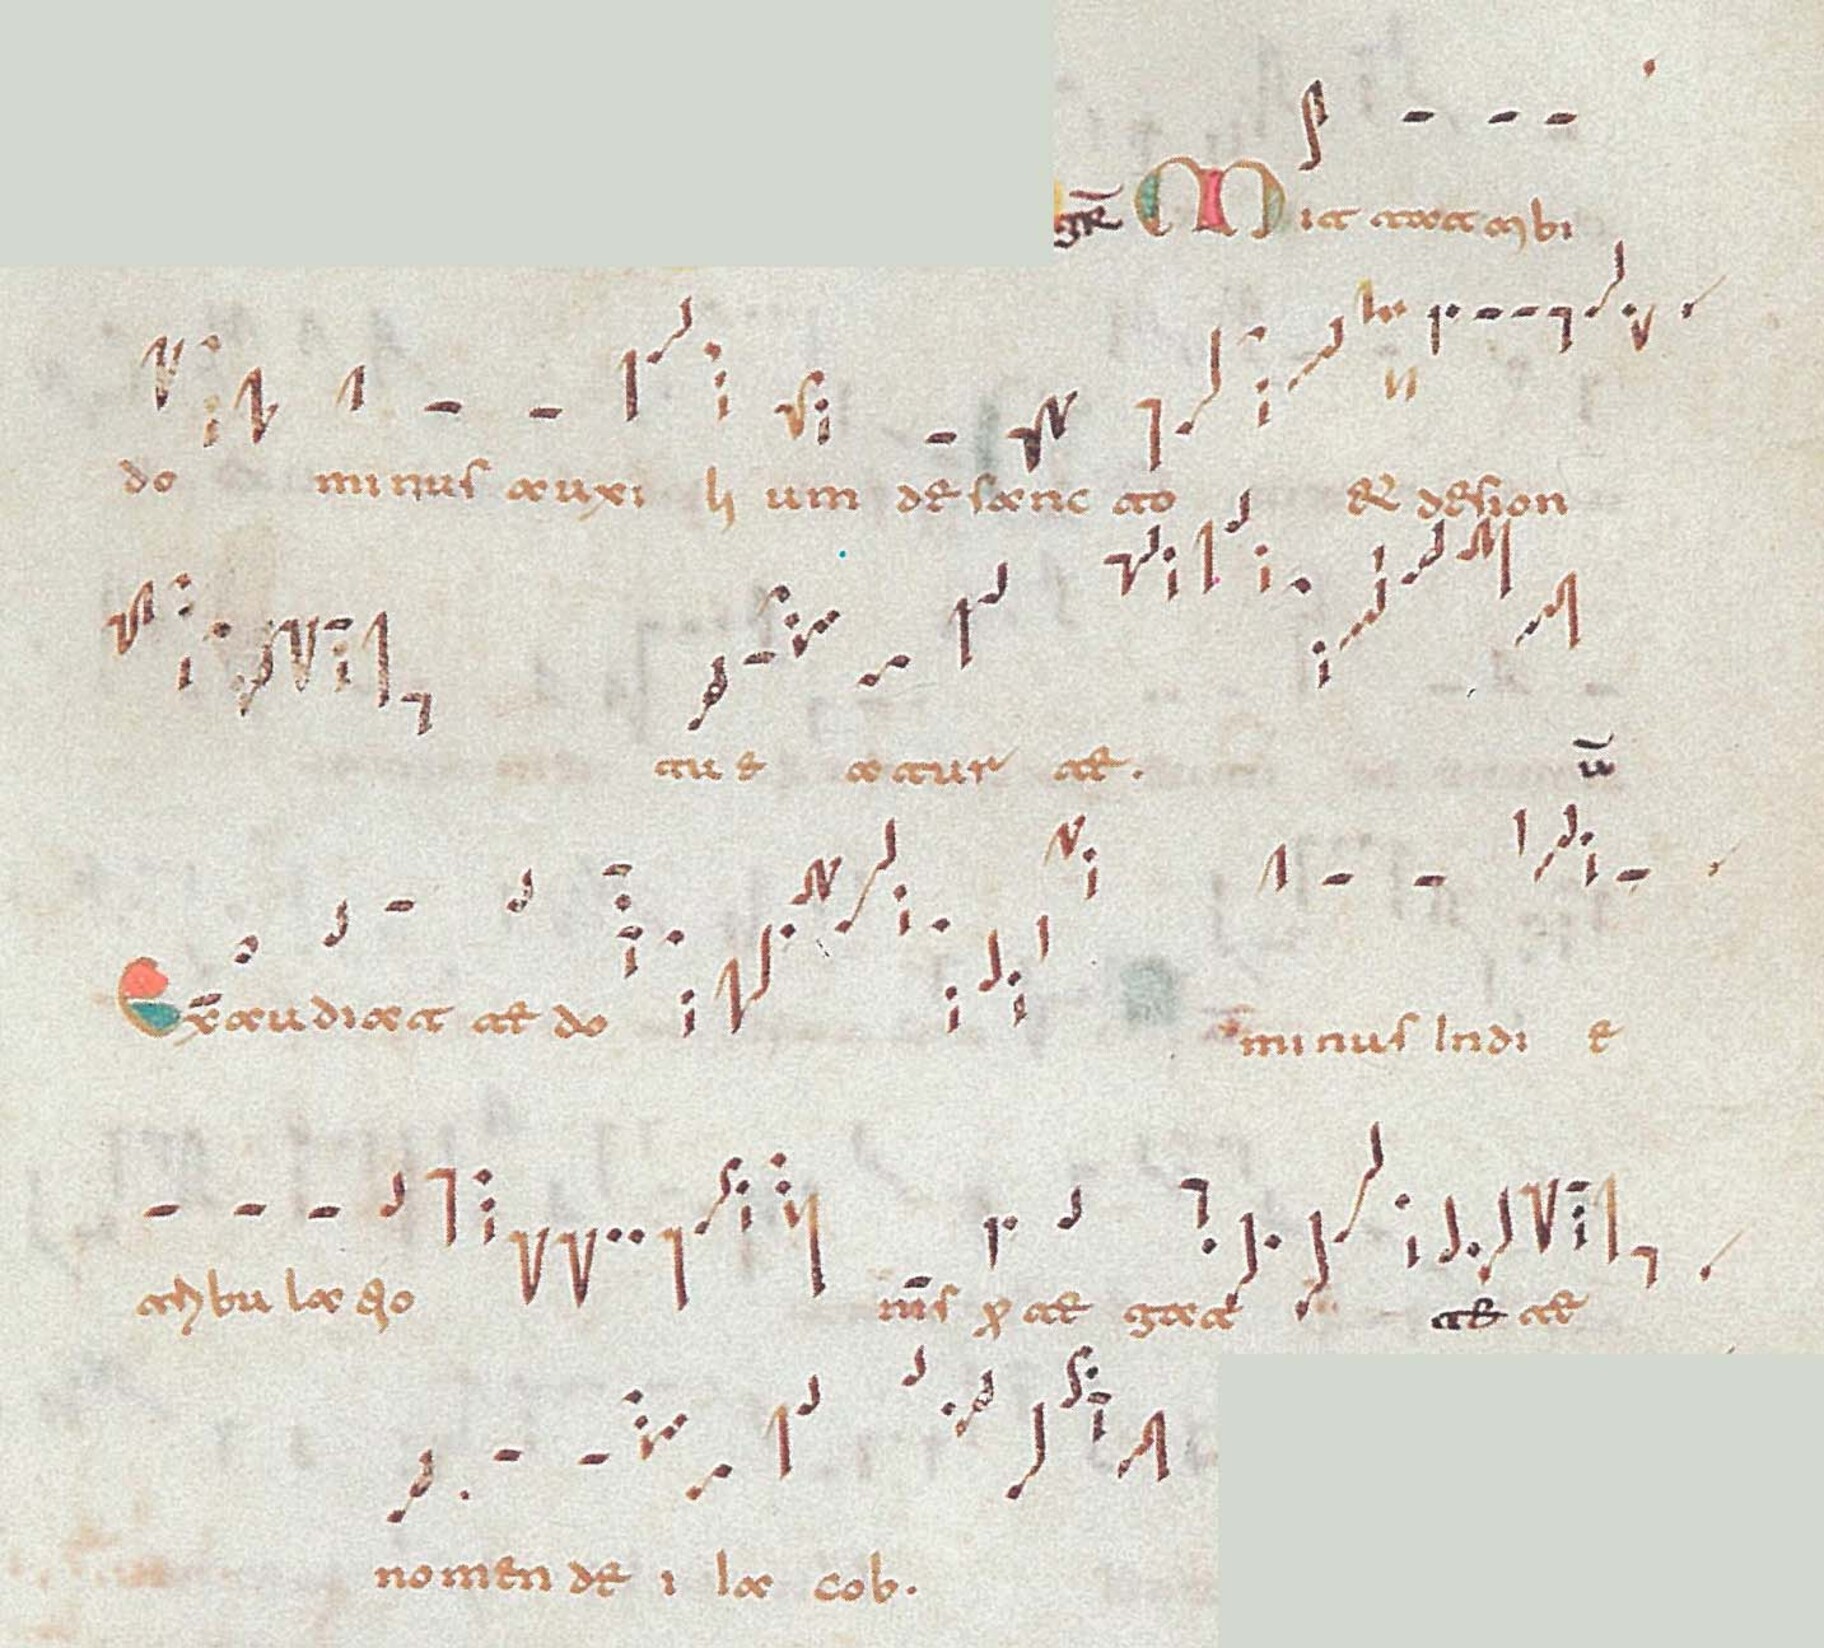 gR̄ Mittat tibi
do minus auxi li um de sanc to & de sion
tu e a tur te. v̄
Exaudiat te do minus In di e
tribulatio nis p̱ te gat te te
nomen de i Ia cob.